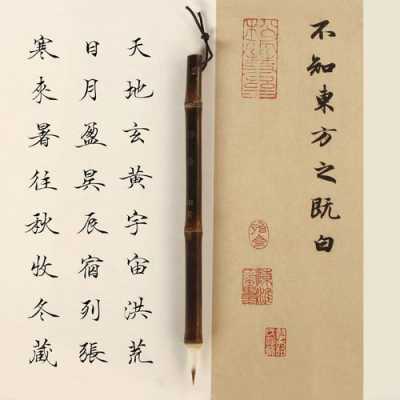 不知東方之既白
天地玄黃宇宙洪荒
日月盈昃辰宿列張
寒來暑往秋收冬藏